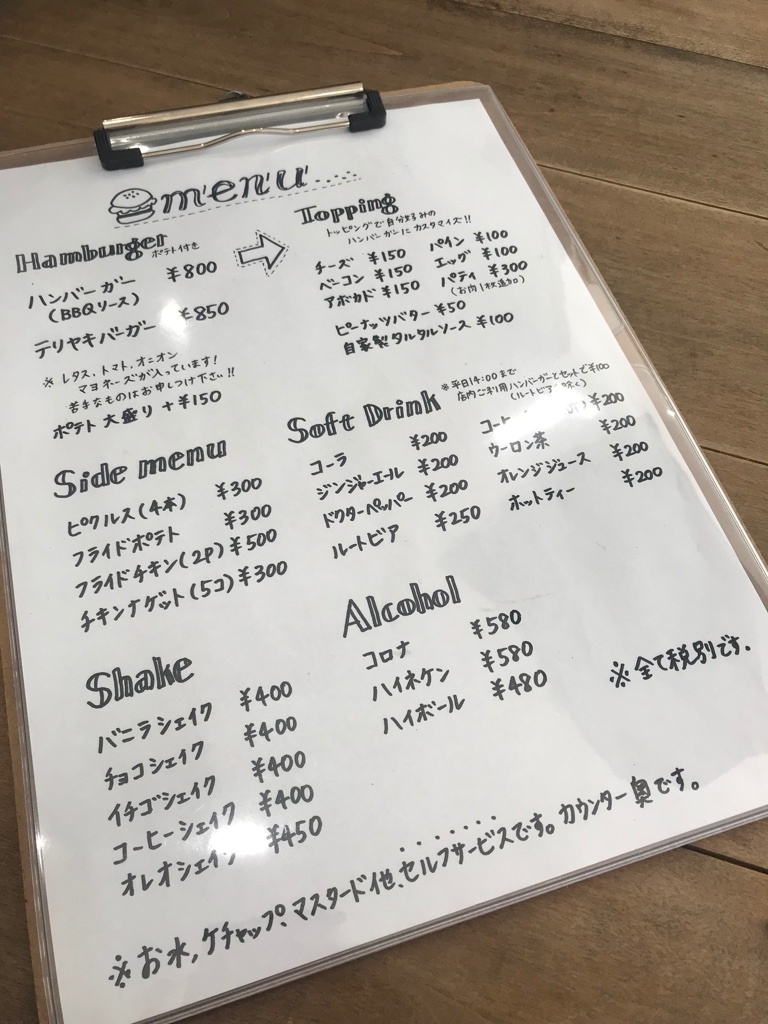 menu.....
Hamburger ポテト付き
ハンバーガー ¥800
(BBQソース)
テリヤキバーガー ¥850
※ レタス、トマト、オニオン
マヨネーズが入っています!
苦手なものはお申しつけ下さい!!
ポテト大盛り +¥150
Topping
トッピングで自分好みの
ハンバーガーにカスタマイズ!!
チーズ ¥150
ベーコン ¥150
アボカド ¥150
パイン ¥100
エッグ ¥100
パティ ¥300
(お肉1枚追加)
ピーナッツバター ¥50
自家製タルタルソース ¥100
Side menu
ピクルス(4本) ¥300
フライドポテト ¥300
フライドチキン(2P) ¥500
チキンナゲット(5コ) ¥300
Soft Drink
※平日14:00まで
店内ご利用ハンバーガーとセットで¥100
(ルートビア除く)
コーラ ¥200
ジンジャーエール ¥200
ドクターペッパー ¥200
ルートビア ¥250
コーヒー ¥200
ウーロン茶 ¥200
オレンジジュース ¥200
ホットティー ¥200
Shake
バニラシェイク ¥400
チョコシェイク ¥400
イチゴシェイク ¥400
コーヒーシェイク ¥400
オレオシェイク ¥450
Alcohol
コロナ ¥580
ハイネケン ¥580
ハイボール ¥480
※全て税別です.
※お水、ケチャップ、マスタード他、セルフサービスです。カウンター奥です。